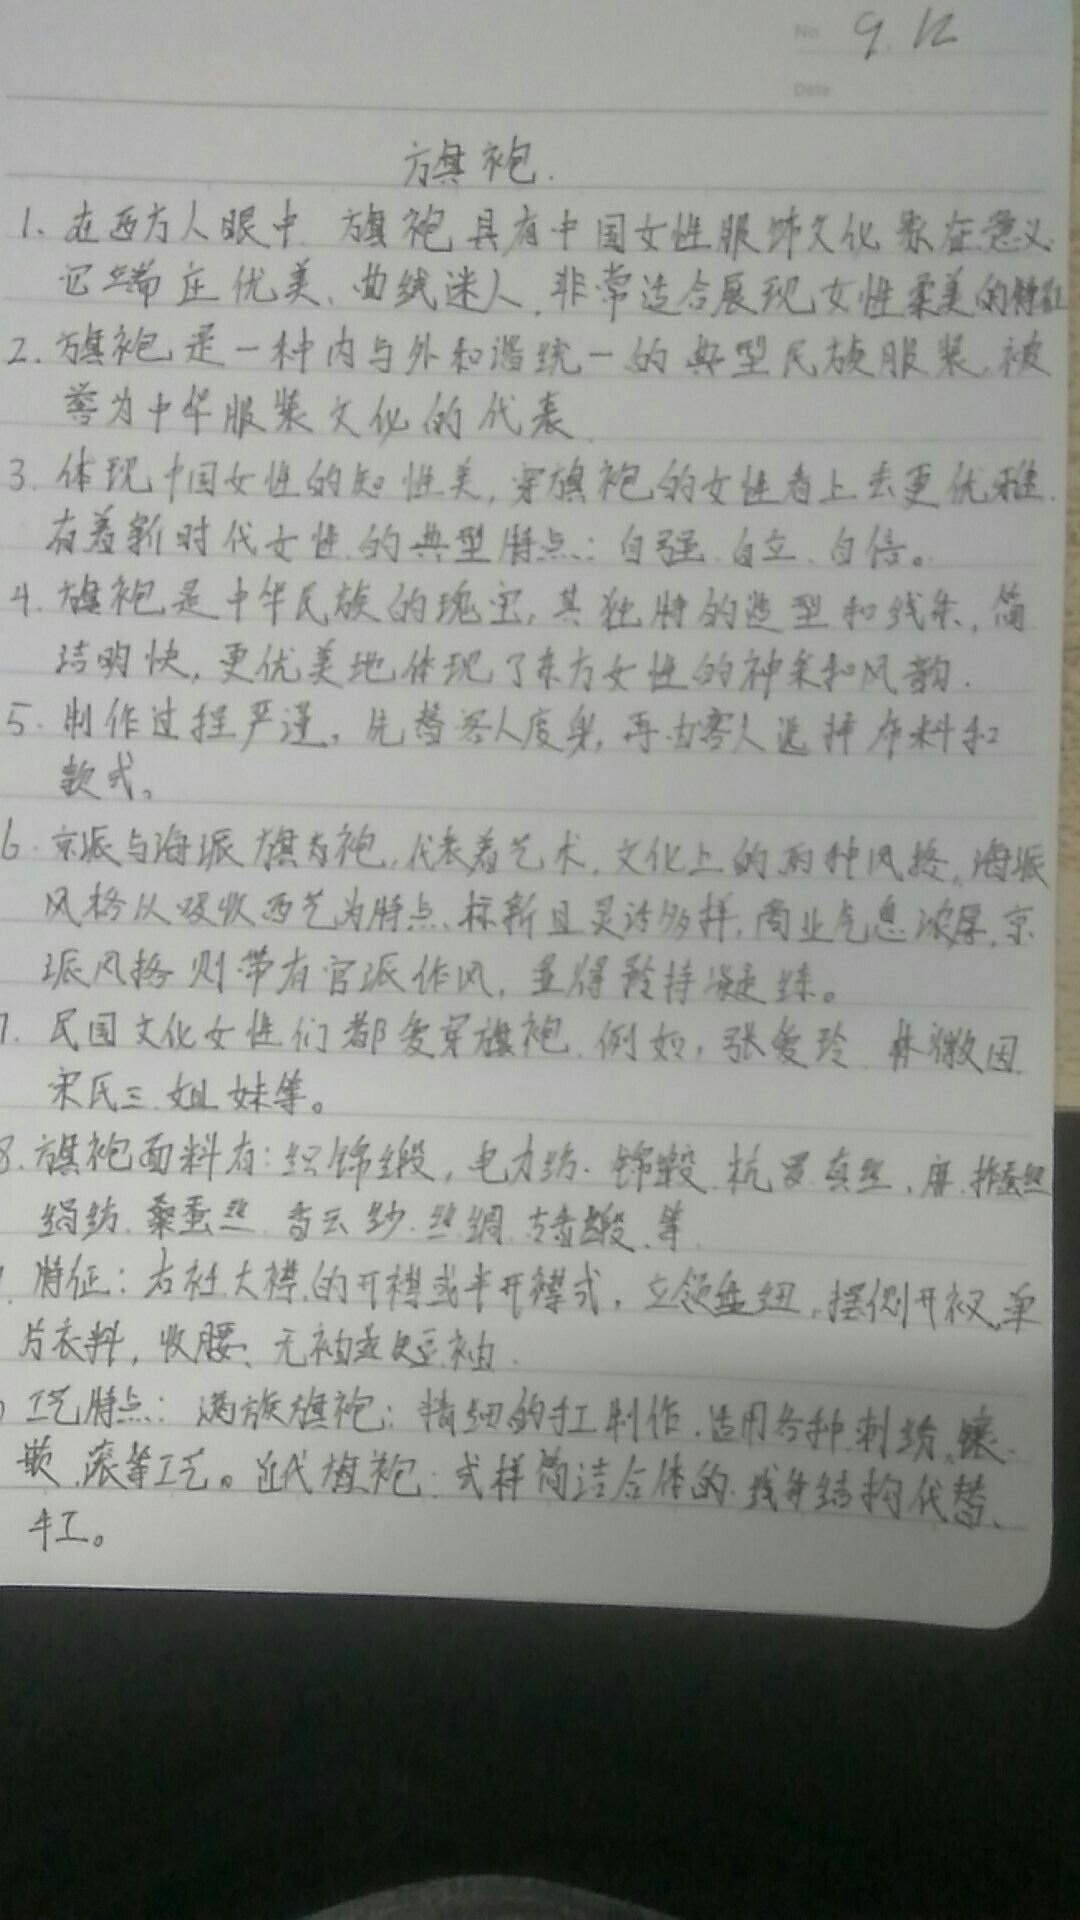 No. 9.12
Date
旗袍.
1. 在西方人眼中, 旗袍具有中国女性服饰文化象征意义.
它端庄优美、曲线迷人, 非常适合展现女性柔美的特征
2. 旗袍是一种内与外和谐统一的典型民族服装, 被
誉为中华服装文化的代表.
3. 体现中国女性的知性美, 穿旗袍的女性看上去更优雅.
有着新时代女性的典型特点: 自强、自立、自信。
4. 旗袍是中华民族的瑰宝, 其独特的造型和线条, 简
洁明快, 更优美地体现了东方女性的神采和风韵.
5. 制作过程严谨, 先替客人度身, 再由客人选择布料和
款式。
6. 京派与海派旗袍, 代表着艺术, 文化上的两种风格, 海派
风格以吸收西艺为特点、标新且灵活多样, 商业气息浓厚, 京
派风格则带有官派作风, 显得矜持凝练。
7. 民国文化女性们都爱穿旗袍. 例如, 张爱玲 林徽因
宋氏三姐妹等。
8. 旗袍面料有: 织锦缎, 电力纺. 锦缎. 杭罗. 真丝, 麻. 柞蚕丝
绢纺. 桑蚕丝. 香云纱. 丝绸. 缎 等.
特征: 右衽大襟的开襟或半开襟式, 立领盘纽, 摆侧开衩, 单
片衣料, 收腰、无袖或短袖.
工艺特点: 满族旗袍: 精细的手工制作. 适用各种刺绣、镶.
嵌. 滚等工艺。近代旗袍: 式样简洁合体的线条结构代替、
手工。